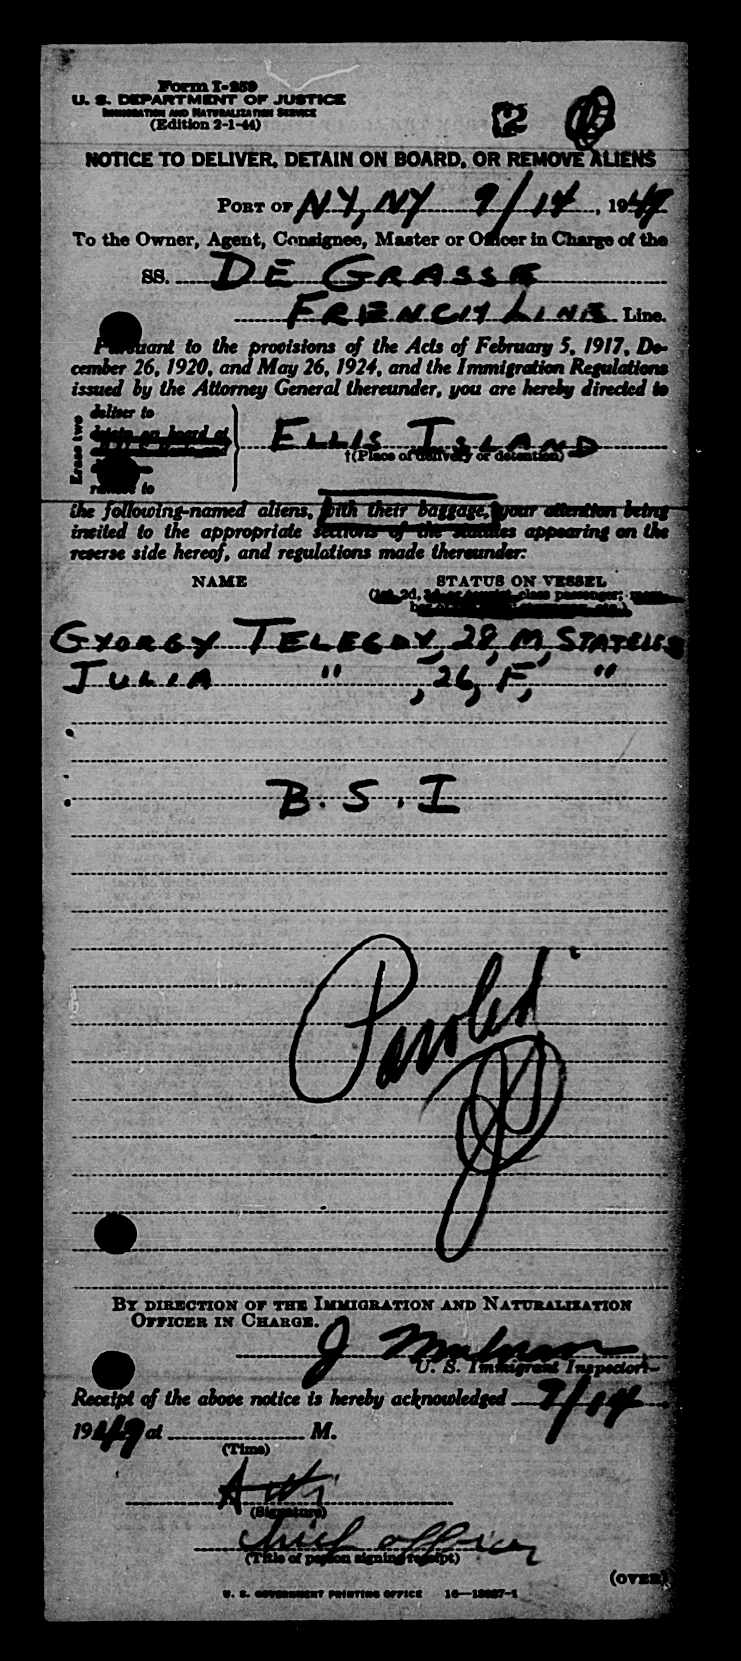 Form I-259
U. S. DEPARTMENT OF JUSTICE
IMMIGRATION AND NATURALIZATION SERVICE
(Edition 2-1-44)
2
NOTICE TO DELIVER, DETAIN ON BOARD, OR REMOVE ALIENS
PORT OF NY, NY 9/14, 1949
To the Owner, Agent, Consignee, Master or Officer in Charge of the
SS. DE GRASSE
FRENCH LINE Line.
Pursuant to the provisions of the Acts of February 5, 1917, De-
cember 26, 1920, and May 26, 1924, and the Immigration Regulations
issued by the Attorney General thereunder, you are hereby directed to
Erase two
deliver to
detain on board at
ELLIS ISLAND
†(Place of delivery or detention)
remove to
the following-named aliens, with their baggage, your attention being
invited to the appropriate sections of the statutes appearing on the
reverse side hereof, and regulations made thereunder:
NAME STATUS ON VESSEL
(1st, 2d, class passenger;
GYORGY TELEGDY, 28, M, STATELESS
JULIA " , 26, F, "
B.S.I
Paroled
BY DIRECTION OF THE IMMIGRATION AND NATURALIZATION
OFFICER IN CHARGE.
J
U. S. Immigrant Inspector.
Receipt of the above notice is hereby acknowledged 9/14
1949 at M.
(Time)
(Signature)
Chief officer
(Title of person signing receipt)
(OVER)
U. S. GOVERNMENT PRINTING OFFICE